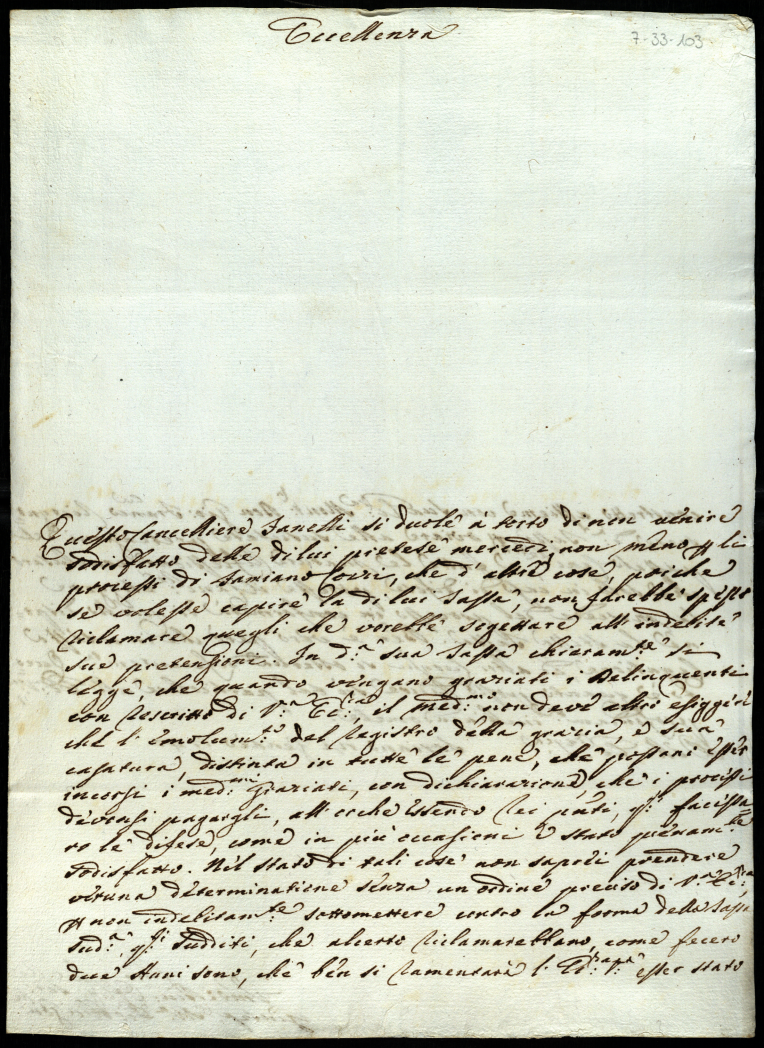 Eccellenza
7-33-103
Questo Cancelliere Zanelli si duole à torto di non venire
sodisfatto delle di lui pretese mercedi, non meno p li
processi di Damiano, che d'altre cose, poiche
se volesse capire la di lui Tassa, non farebbe spesse
riclamare quegli che vorebbe sogettare all'indebite
sue pretensioni. In d.ª sua Tassa chiaram.te si
legge, che quando vengano graziati i Delinquenti
con rescritto di V.ª Ecc.za il med.mo non deve altri esiggere
che l'Emolum.to del registro della grazia, e sua
casatura, distinta in tutte le pene, che possani esser
incorsi i med.mi graziati, con dichiarazione, che i processi
devonsi pagargli, all'orche essendo rei, q.li facessa=
ro le difese, come in più occasioni è stato pienam.te
sodisfatto. Nel stato di tali cose non saprei prendere
veruna determinatione senza un ordine preciso di V.ª Ecc.za
p non indebitam.te sottomettere contro la forma della Tassa
sud.ª q.ti sudditi, che alcerto riclamarebbano, come fecero
due Anni sono, che ben si ramentarà l'Ecc.za V.ª esser stato